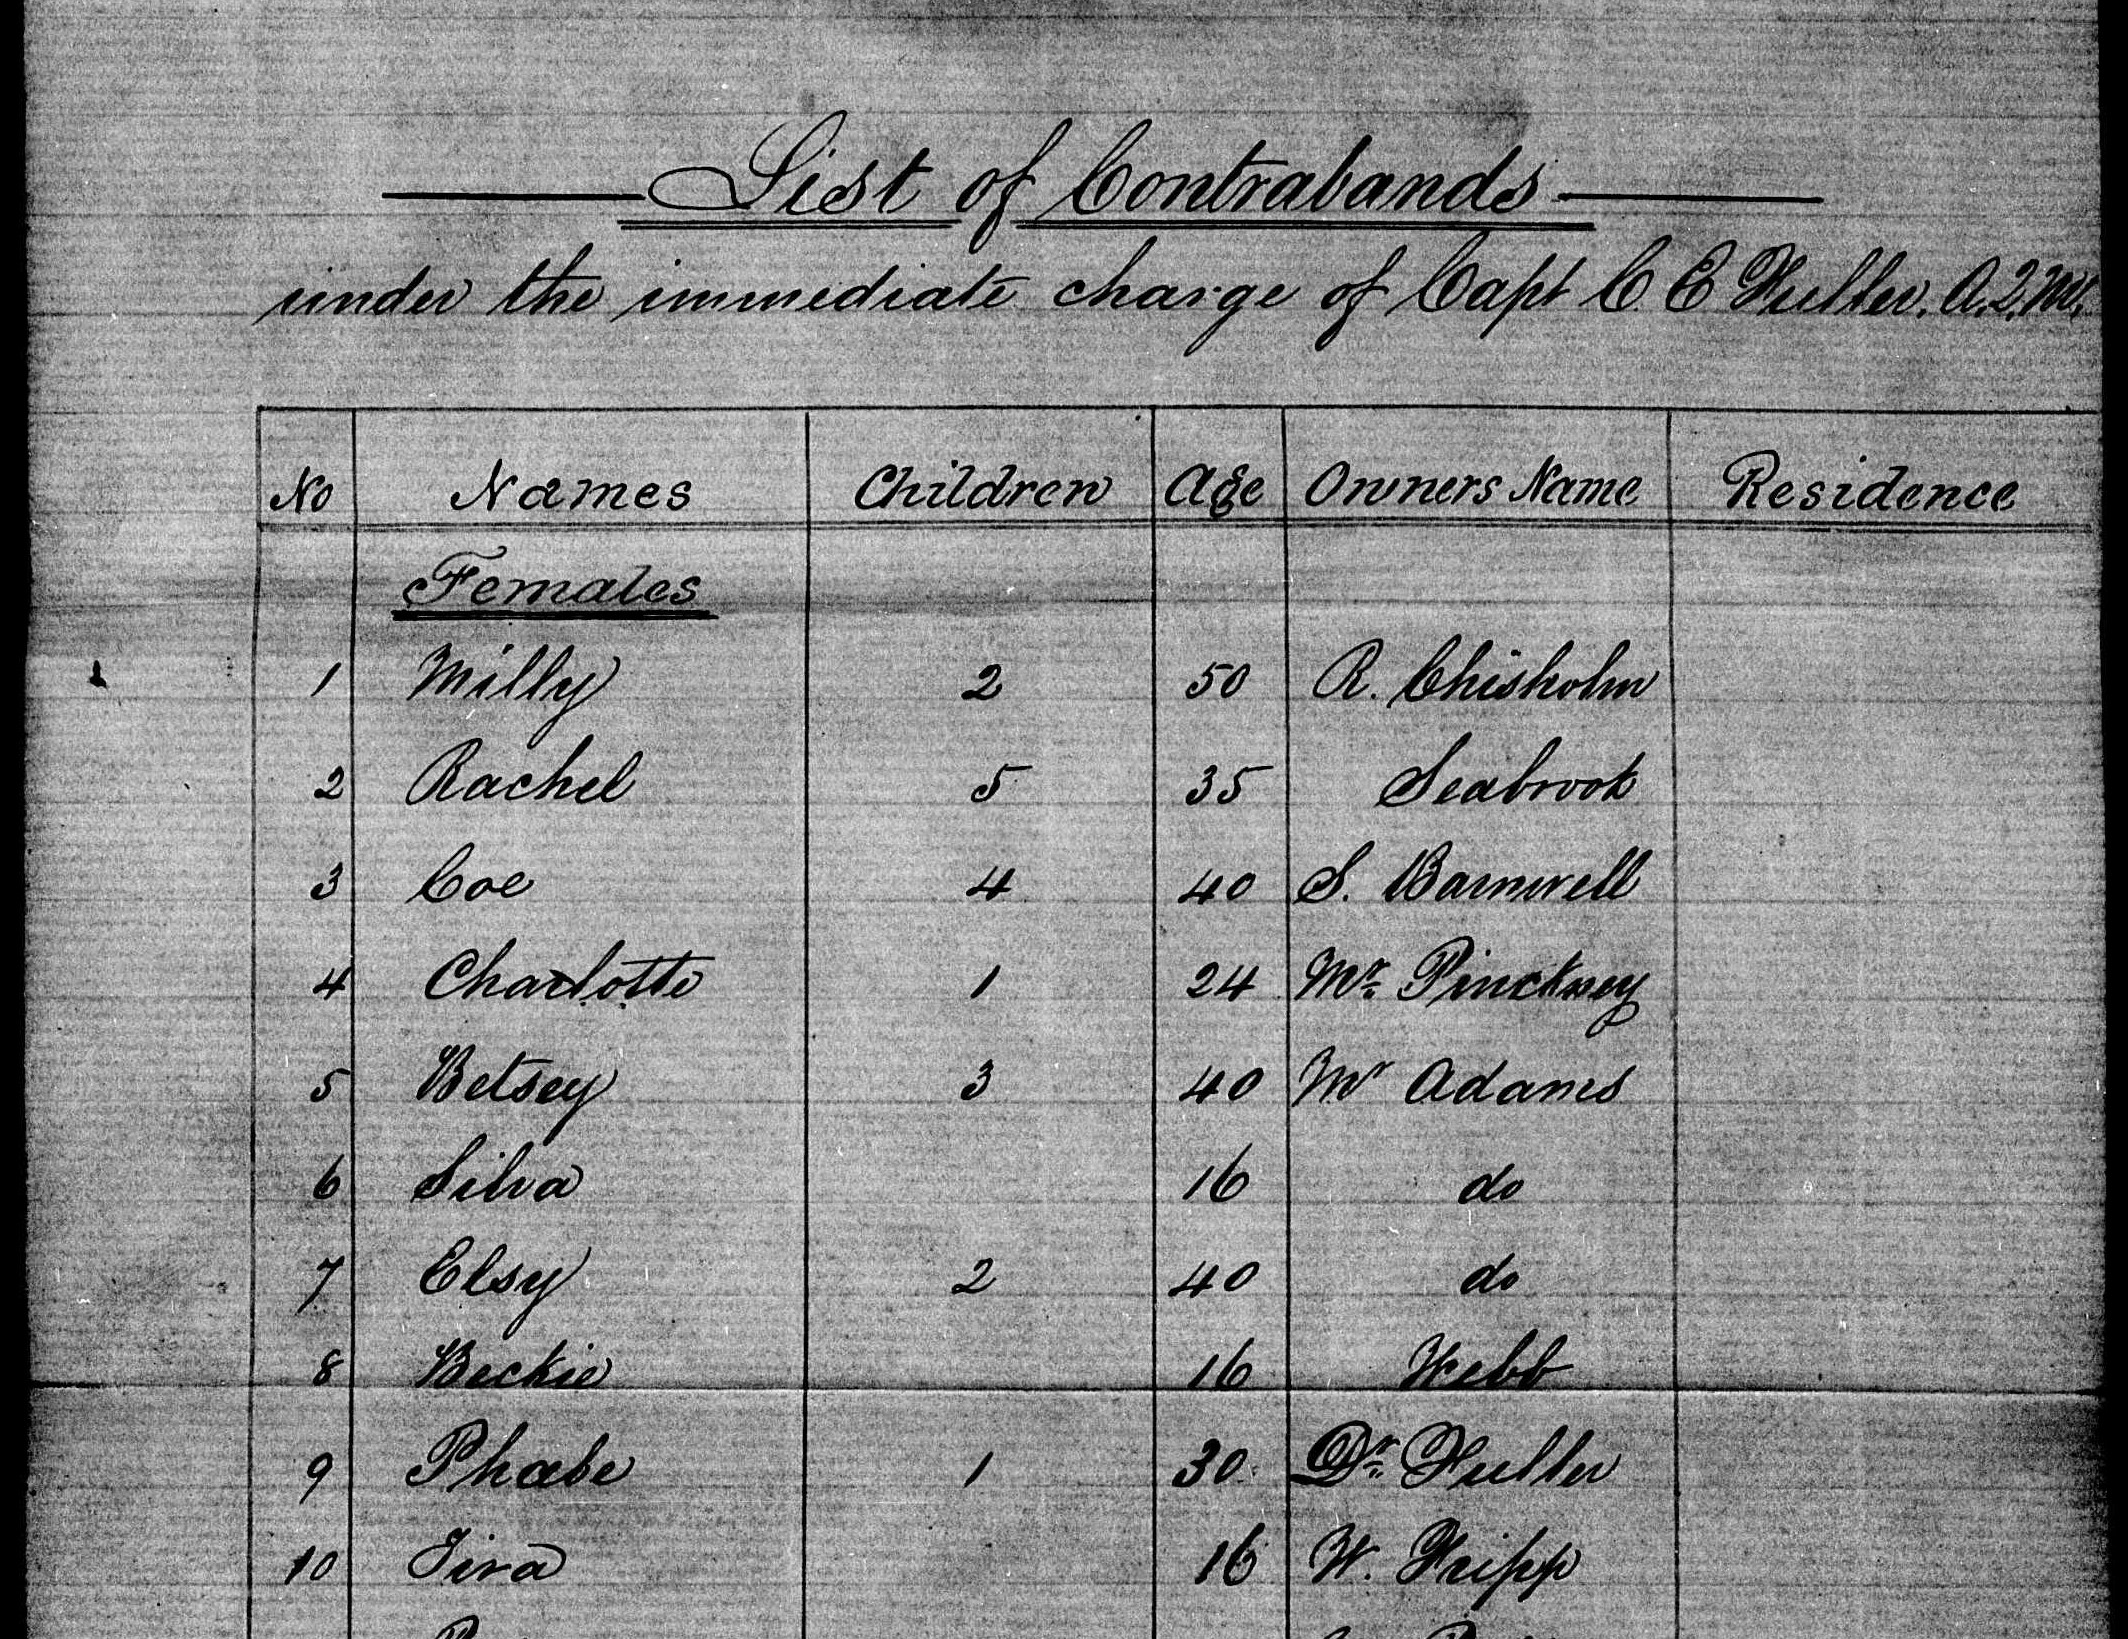 List of Contrabands
under the immediate charge of Capt C. E Fuller. A.Q.M.
No Names Children Age Owners Name Residence
Females
1 Milly 2 50 R. Chisholm
2 Rachel 5 35 Seabrook
3 Coe 4 40 S. Barnwell
4 Charlotte 1 24 Mr. Pinckney
5 Betsey 3 40 Mr Adams
6 Silva 16 do
7 Elsy 2 40 do
8 Beckie 16 Webb
9 Phœbe 1 30 Dr. Fuller
10 Tira 16 W. Fripp